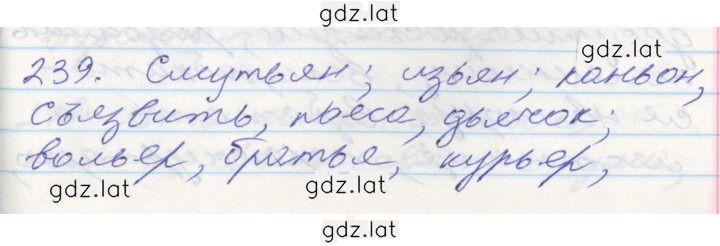 gdz.lat
gdz.lat
239. Смутьян; изьян; каньон,
съязвить, пьеса, дьячок;
вольер, братья, курьер,
gdz.lat
gdz.lat
gdz.lat